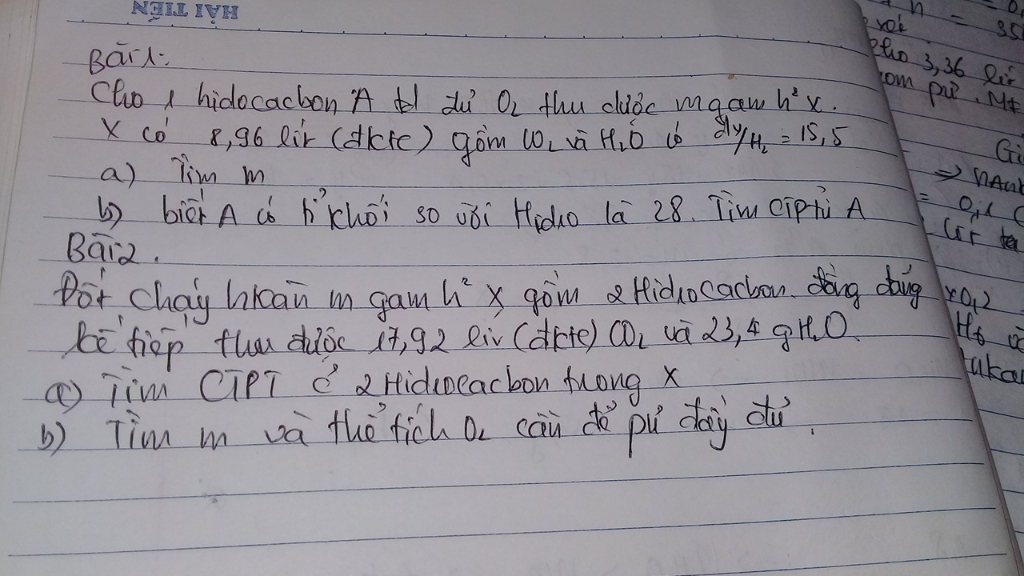 HẢI TIẾN
Bài 1:
Cho 1 hidocacbon A td đủ O₂ thu được m gam h² X.
X có 8,96 lít (đktc) gồm CO₂ và H₂O có /H₂ = 15,5
a) Tìm m
b) biết A có tỉ khối so với Hidro là 28. Tìm CTPTử A
Bài 2.
Đốt cháy hoàn m gam h² X gồm 2 Hidrocacbon đồng đẳng
kế tiếp thu được 17,92 lít (đktc) CO₂ và 23,4 g H₂O
a) Tìm CTPT ở 2 Hidrocacbon trong X
b) Tìm m và thể tích O₂ cần để pứ đầy đủ.
n = 35
với
cho 3,36 lít
Gi
= 0,1
x 0,2